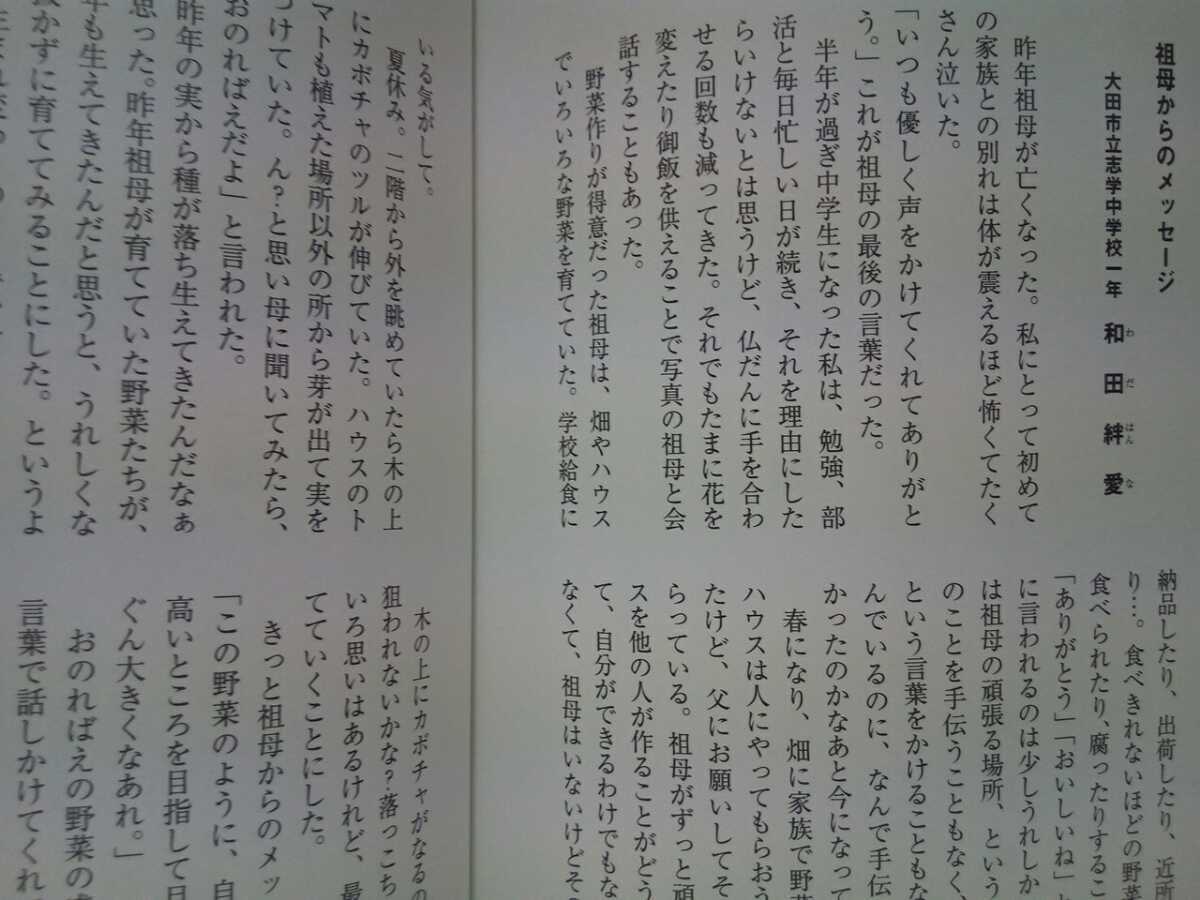 祖母からのメッセージ
大田市立志学中学校一年 和田絆愛
わ だ はん な
昨年祖母が亡くなった。私にとって初めて
の家族との別れは体が震えるほど怖くてたく
さん泣いた。
「いつも優しく声をかけてくれてありがと
う。」これが祖母の最後の言葉だった。
半年が過ぎ中学生になった私は、勉強、部
活と毎日忙しい日が続き、それを理由にした
らいけないとは思うけど、仏だんに手を合わ
せる回数も減ってきた。それでもたまに花を
変えたり御飯を供えることで写真の祖母と会
話することもあった。
野菜作りが得意だった祖母は、畑やハウス
でいろいろな野菜を育てていた。学校給食に
納品したり、出荷したり、近所
り…。食べきれないほどの野菜
食べられたり、腐ったりするこ
「ありがとう」「おいしいね」と
に言われるのは少しうれしか
は祖母の頑張る場所、という
のことを手伝うこともなく、
という言葉をかけることもな
んでいるのに、なんで手伝
かったのかなあと今になって
春になり、畑に家族で野菜
ハウスは人にやってもらおう
たけど、父にお願いしてそ
らっている。祖母がずっと頑
スを他の人が作ることがどう
て、自分ができるわけでもな
なくて、祖母はいないけどそ
いる気がして。
夏休み。二階から外を眺めていたら木の上
にカボチャのツルが伸びていた。ハウスのト
マトも植えた場所以外の所から芽が出て実を
つけていた。ん?と思い母に聞いてみたら、
おのればえだよ」と言われた。
昨年の実から種が落ち生えてきたんだなぁ
思った。昨年祖母が育てていた野菜たちが、
年も生えてきたんだと思うと、うれしくな
抜かずに育ててみることにした。というよ
木の上にカボチャがなるの
狙われないかな?落っこち
いろ思いはあるけれど、最
てていくことにした。
きっと祖母からのメッ
「この野菜のように、自
高いところを目指して日
ぐん大きくなあれ。」
おのればえの野菜の
言葉で話しかけてくれ